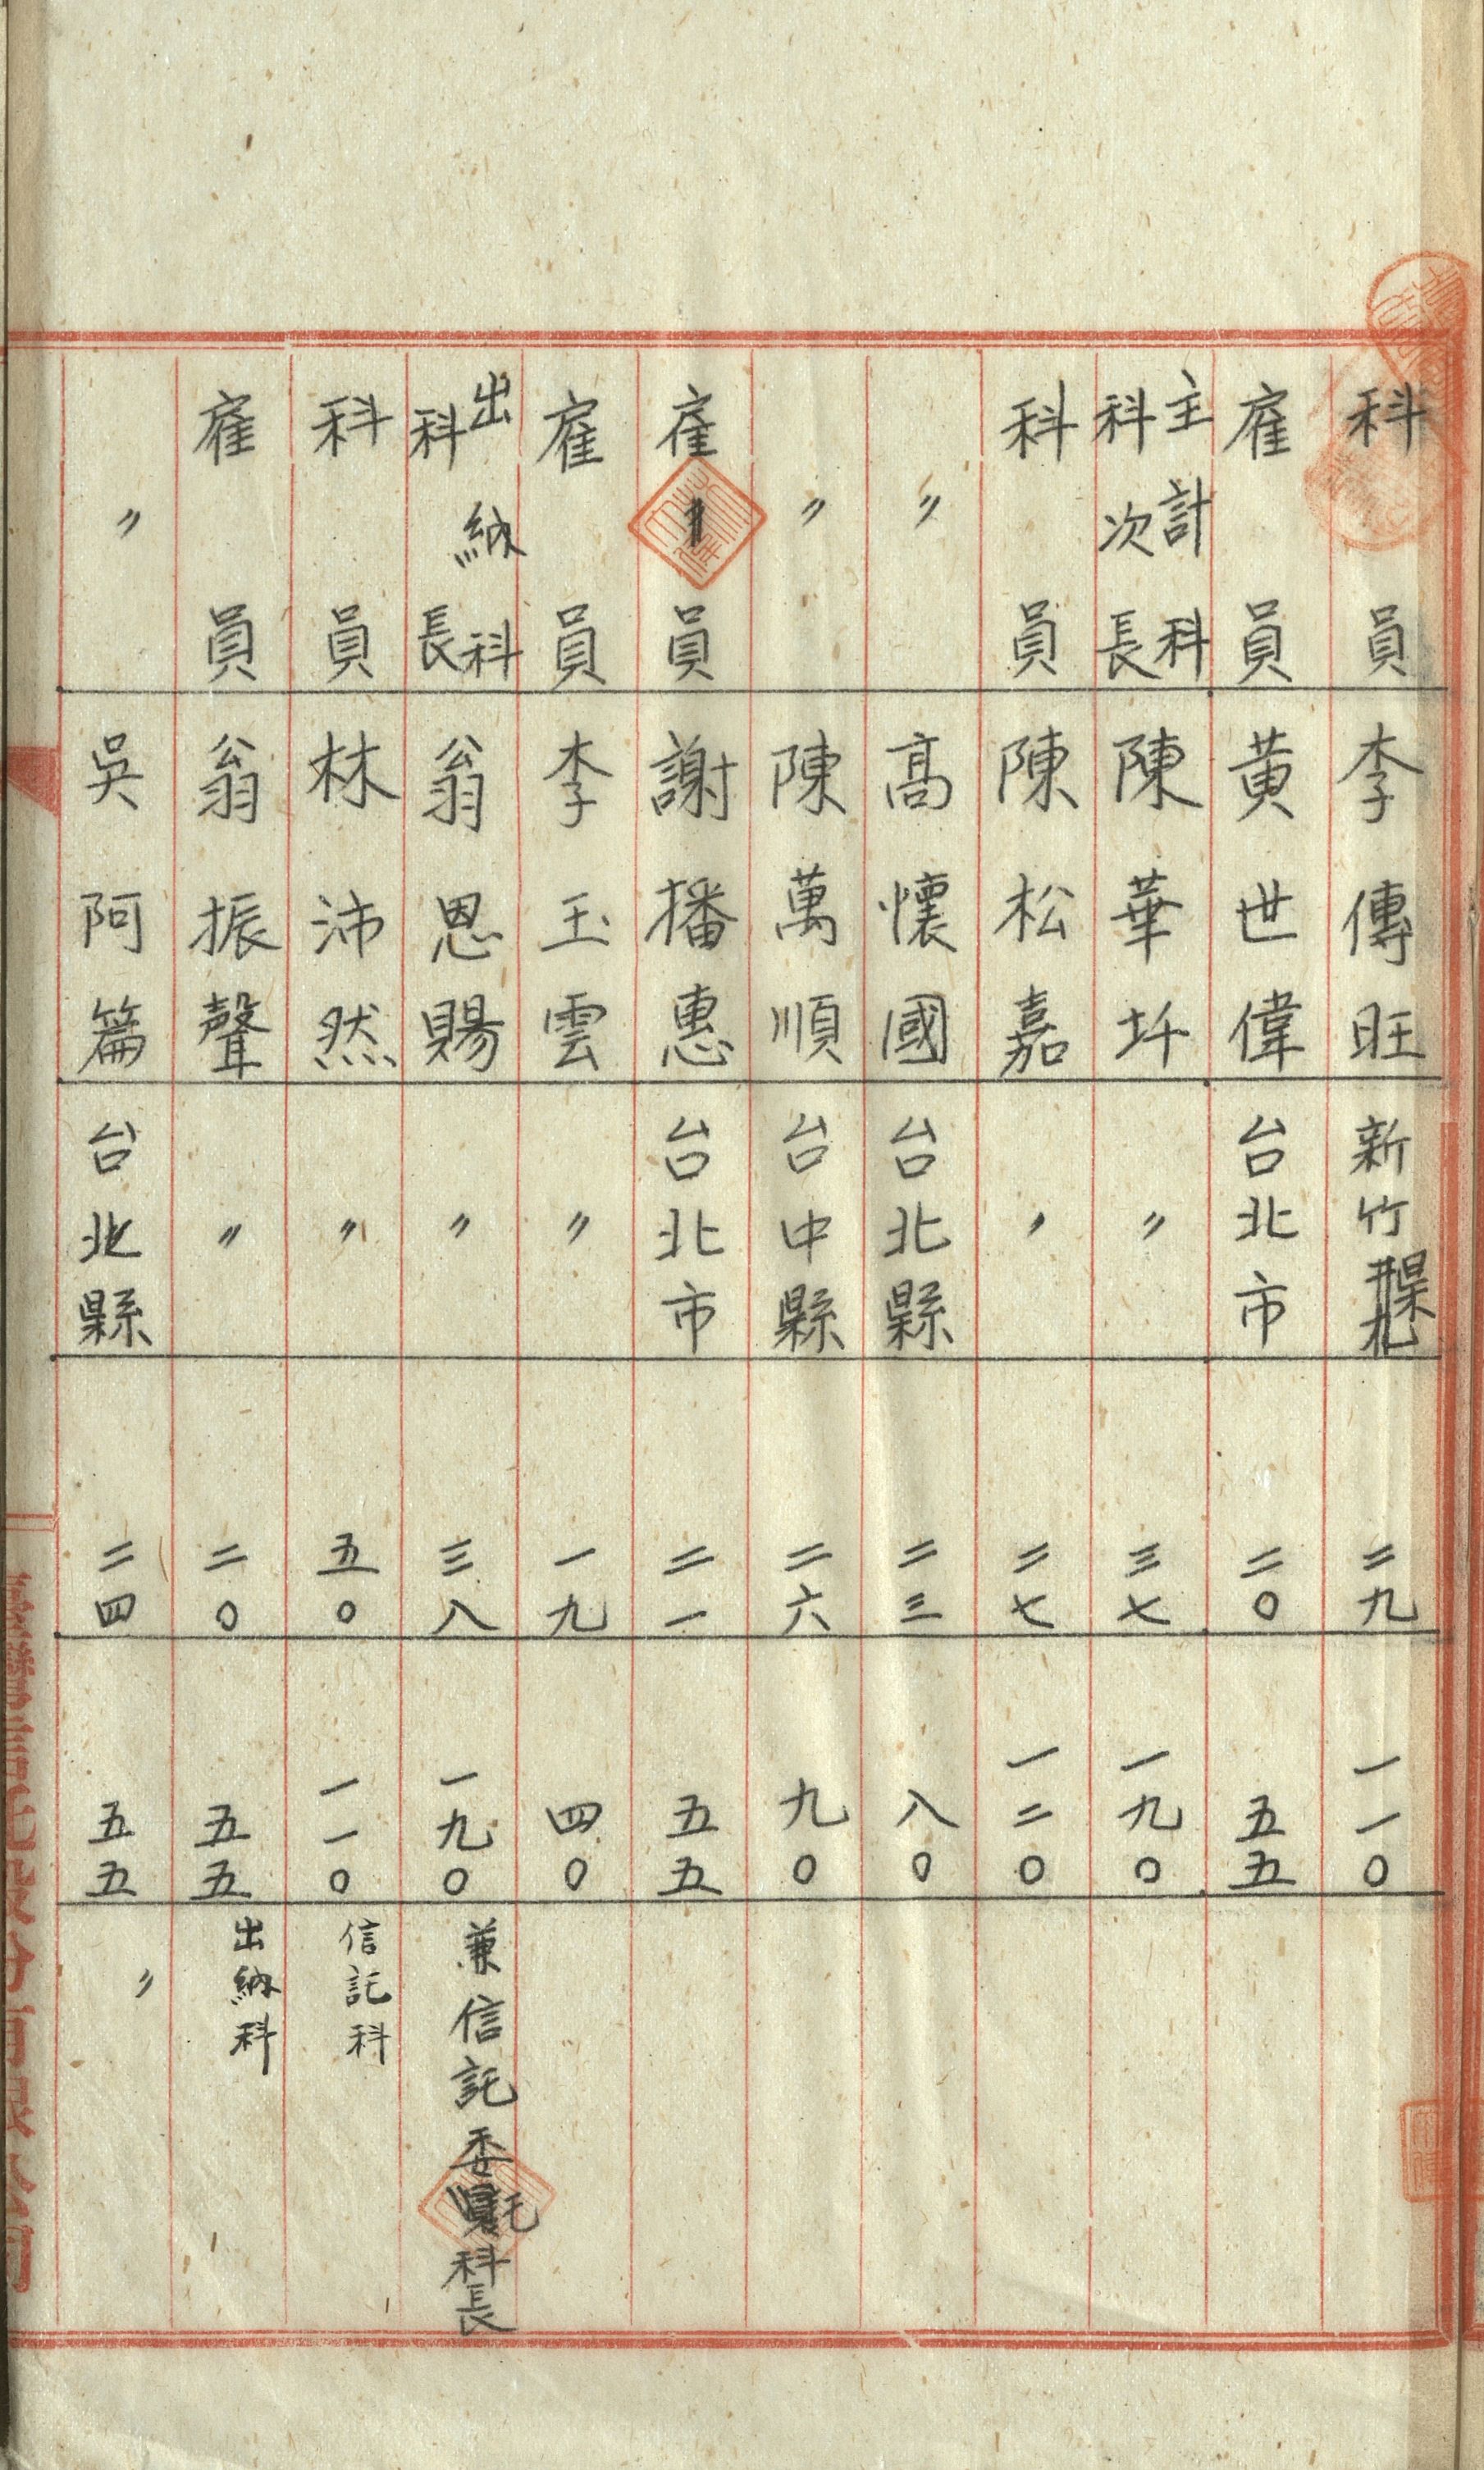 科員 李傳旺 新竹縣 二九 一一〇
雇員 黃世偉 台北市 二〇 五五
主計科科次長 陳華圲 〃 三七 一九〇
科員 陳松嘉 〃 二七 一二〇
〃 高懷國 台北縣 二三 八〇
〃 陳萬順 台中縣 二六 九〇
雇員 謝播惠 台北市 二一 五五
雇員 李玉雲 〃 一九 四〇
出納科科長 翁恩賜 〃 三八 一九〇 兼信託委託科長
科員 林沛然 〃 五〇 一一〇 信託科
雇員 翁振聲 〃 二〇 五五 出納科
〃 吳阿篇 台北縣 二四 五五 〃
臺灣信託股份有限公司